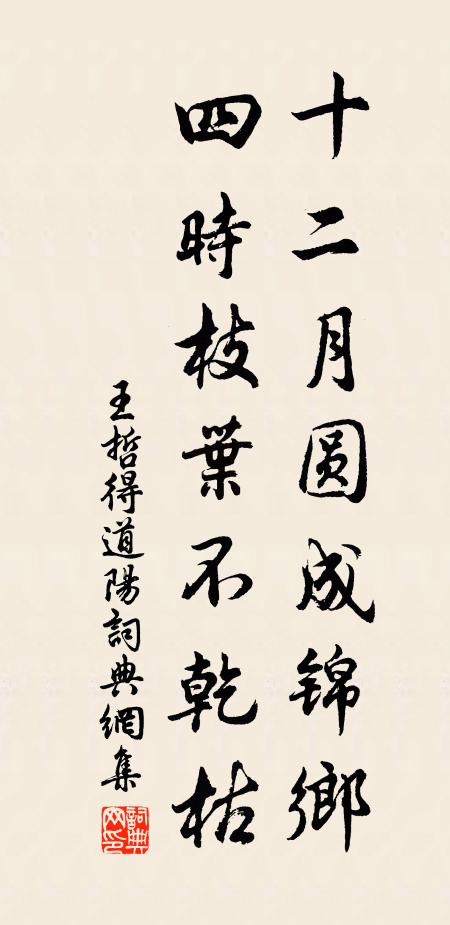 十二月圆成锦鄉
四時枝葉不乾枯
王哲得道陽詞典網集
詞典網印